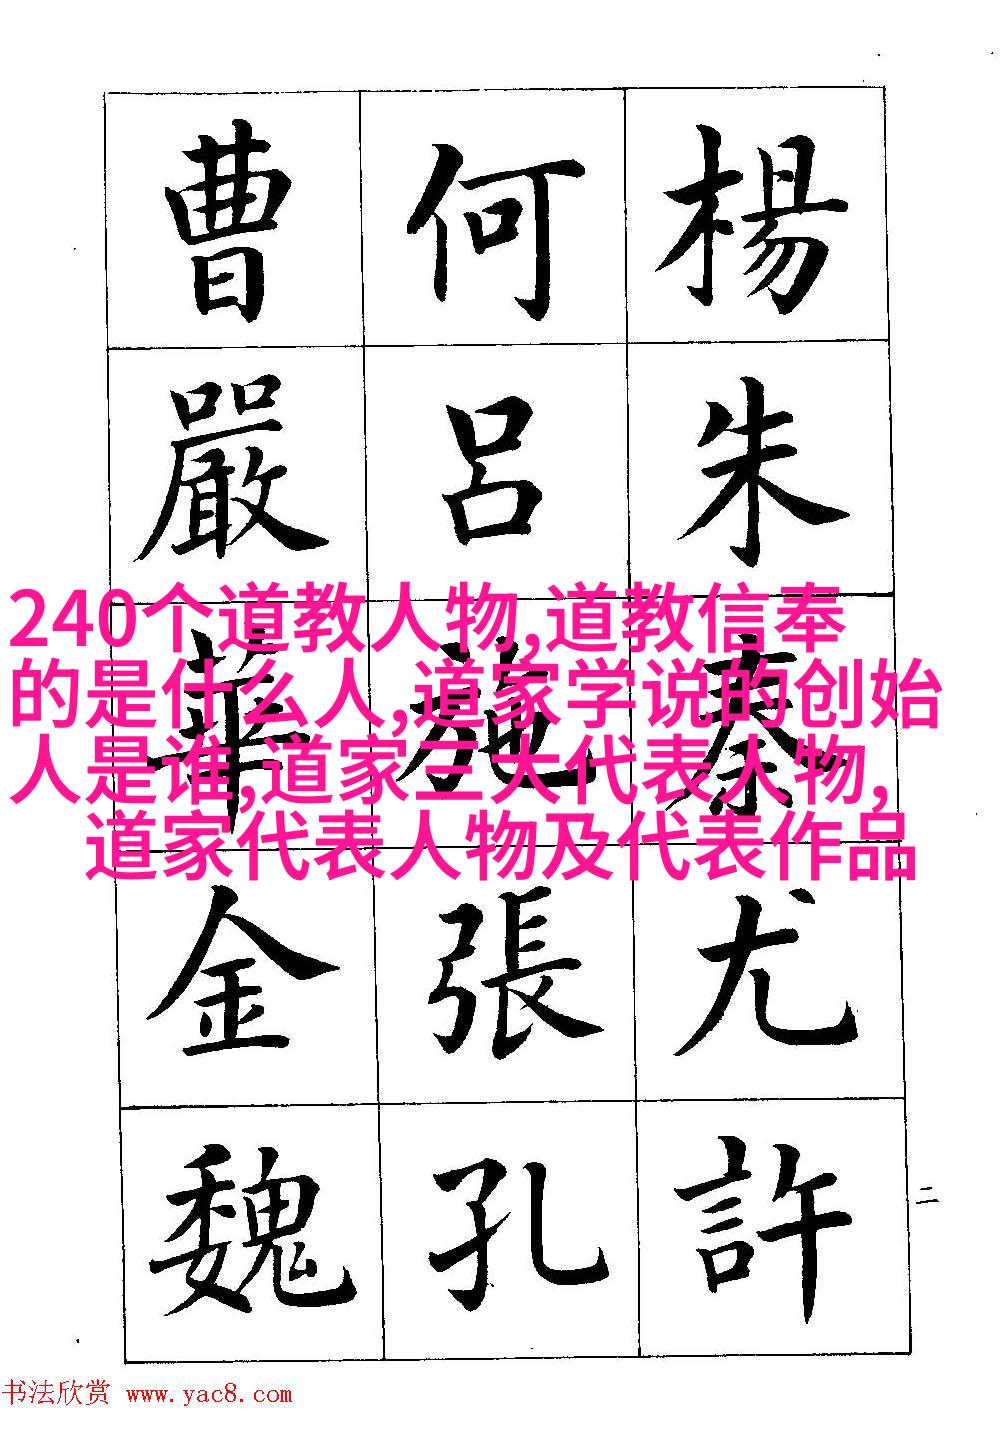 楊朱秦尤許
何呂施張孔
曹嚴華金魏
二
240个道教人物,道教信奉
的是什么人,道家学说的创始
人是谁,道家三大代表人物,
道家代表人物及代表作品
书法欣赏 www.yac8.com